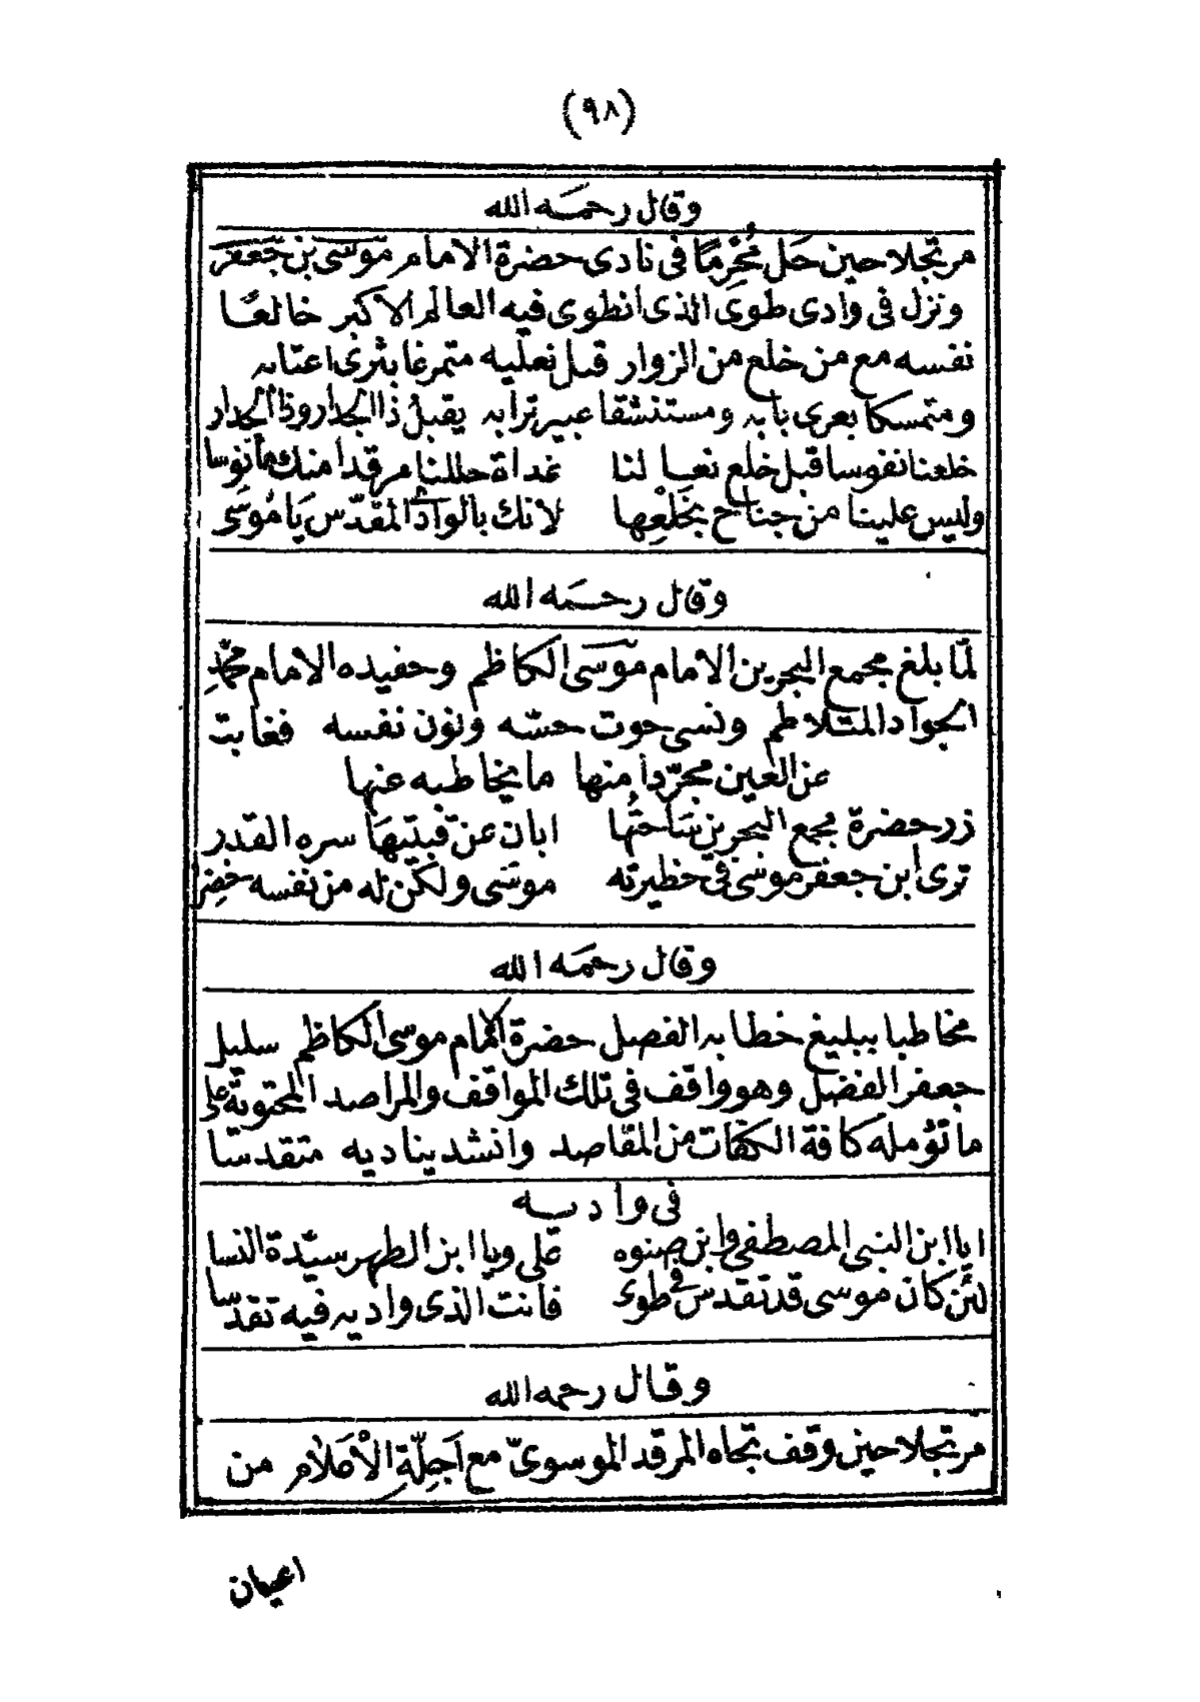 (٩٨)
وقال رحمه الله
مرتجلا حين حل مُحْرِمًا في نادى حضرة الامام موسى بن جعفر
ونزل فى وادى طوى الذى انطوى فيه العالم الاكبر خالعا
نفسه مع من خلع من الزوار قبل نعليه متمرغا بثرى اعتابه
ومتمسكا بعرى بابه ومستنشقا عبير ترابه يقبل ذا الجدار وذا الجدار
خلعنا نفوسا قبل خلع نعالنا غداة حللنا مرقدا منك مأنوسا
وليس علينا من جناح بخَلْعِها لانك بالواد المقدّس يَا مُوسَى
وقال رحمه الله
لمّا بلغ مجمع البحرين الامام موسى الكاظم وحفيده الامام محمّد
الجواد المتلاطم ونسى حوت حسّه ونون نفسه فغابت
عن العين مجرّدا منها ما يخاطبه عنها
زر حضرة مجمع البحرين سَاحتُها ابان عن قبتيهَا سره القدر
ترى ابن جعفر موسى فى حظيرته موسَى ولكن له من نفسه خضِر
وقال رحمه الله
مخاطبا ببليغ خطابه الفصل حضرة الامام موسى الكاظم سليل
جعفر الفضل وهو واقف فى تلك المواقف والمراصد المحتوية على
ما تؤمله كافة الكفات من المقاصد وانشد يناديه متقدسا
فى واديه
ايا ابن النبى المصطفى وابن صنوه على ويا ابن الطهر سيّدة النسا
لئن كان موسى قد تقدس فى طوى فانت الذى واديه فيه تقدّسا
وقال رحمه الله
مرتجلا حين وقف تجاه المرقد الموسوىّ مع اَجِلّةِ الْاَعْلَامِ من
اعيان